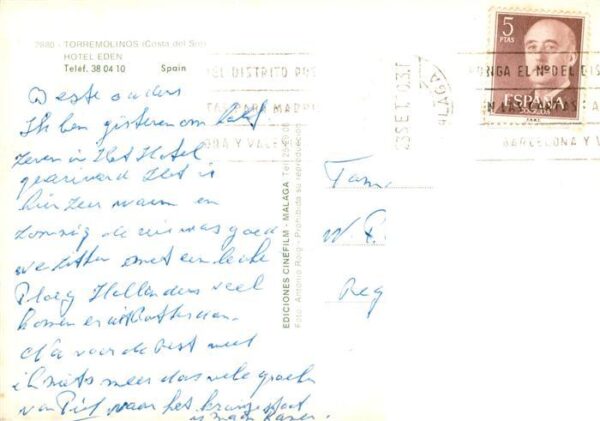 2880 - TORREMOLINOS (Costa del Sol)
HOTEL EDEN
Teléf. 38 04 10 Spain
Beste ouders
Ik ben gisteren om half
zeven in Het Hotel
gearriveerd Het is
hier zeer warm en
zonnig de reis was goed
we zitten met een leuke
Ploeg Hollanders veel
komen er uit Rotterdam.
voor de rest weet
ik niets meer dus vele groeten
van Piet
waar het kruisje staat
is mijn kamer.
EDICIONES CINEFILM - MALAGA
Foto: Antonio Roig - Prohibida su reproducción
Fam.
W. P.
Reg
5
PTAS
ESPAÑA
CORREOS
EL DISTRITO POS
PARA MADRI
Y VALE
23 SET 70
MALAGA
PONGA EL Nº DEL DIS
BARCELONA Y V